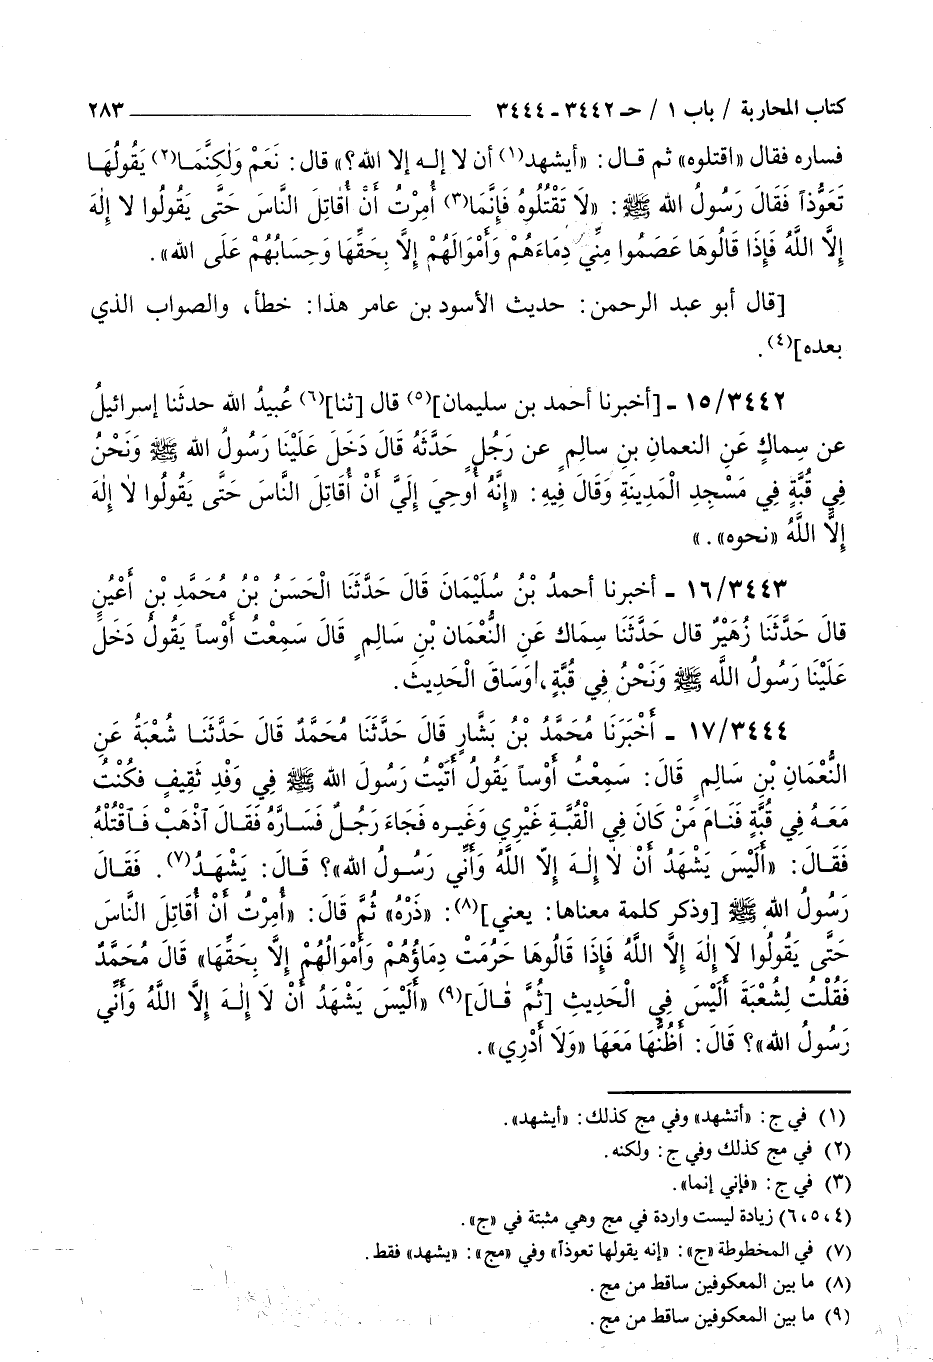 كتاب المحاربة / باب ١ / حـ ٣٤٤٢ ـ ٣٤٤٤ ٢٨٣
فساره فقال «اقتلوه» ثم قال: «أيشهد(١) أن لا إله إلا الله؟» قال: نَعَمْ وَلَكِنَّمَا(٢) يَقُولُهَا
تَعَوُّذاً فَقَالَ رَسُولُ الله ﷺ: «لَا تَقْتُلُوهُ فَإِنَّمَا(٣) أُمِرْتُ أَنْ أُقَاتِلَ النَّاسَ حَتَّى يَقُولُوا لا إِلهَ
إِلَّا اللَّهُ فَإِذَا قَالُوهَا عَصَمُوا مِنِّي دِمَاءَهُمْ وَأَمْوَالَهُمْ إِلَّا بِحَقِّهَا وَحِسَابُهُمْ عَلَى الله».
[قال أبو عبد الرحمن: حديث الأسود بن عامر هذا: خطأ، والصواب الذي
بعده](٤).
١٥/٣٤٤٢ ـ [أخبرنا أحمد بن سليمان](٥) قال [ثنا](٦) عُبيدُ الله حدثنا إسرائيلُ
عن سِماكٍ عَنِ النعمانِ بنِ سالِمٍ عن رَجُلٍ حَدَّثَهُ قَالَ دَخَلَ عَلَيْنَا رَسُولُ الله ﷺ وَنَحْنُ
فِي قُبَّةٍ فِي مَسْجِدِ الْمَدِينَةِ وَقَالَ فِيهِ: «إِنَّهُ أُوحِيَ إِلَيَّ أَنْ أُقَاتِلَ النَّاسَ حَتَّى يَقُولُوا لَا إِلهَ
إِلَّا اللَّهُ «نحوه» .»
١٦/٣٤٤٣ ـ أخبرنا أحمدُ بْنُ سُلَيْمَانَ قَالَ حَدَّثَنَا الْحَسَنُ بْنُ مُحَمَّدِ بْنِ أَعْيُنٍ
قالَ حَدَّثَنَا زُهَيْرٌ قال حَدَّثَنَا سِمَاك عَنِ النُّعْمَانِ بْنِ سَالِمٍ قَالَ سَمِعْتُ أَوْساً يَقُولُ دَخَلَ
عَلَيْنَا رَسُولُ اللَّه ﷺ وَنَحْنُ فِي قُبَّةٍ، وَسَاقَ الْحَدِيثَ.
١٧/٣٤٤٤ ـ أَخْبَرَنَا مُحَمَّدُ بْنُ بَشَّارٍ قَالَ حَدَّثَنَا مُحَمَّدٌ قَالَ حَدَّثَنَا شُعْبَةُ عَنِ
النُّعْمَانِ بْنِ سَالِمٍ قَالَ: سَمِعْتُ أَوْساً يَقُولُ أَتَيْتُ رَسُولَ الله ﷺ فِي وَفْدِ ثَقِيفٍ فكُنْتُ
مَعَهُ فِي قُبَّةٍ فَنَامَ مَنْ كَانَ فِي الْقُبَّةِ غَيْرِي وَغَيره فَجَاءَ رَجُلٌ فَسَارَّهُ فَقَالَ ٱذْهَبْ فَٱقْتُلْهُ
فَقَالَ: «أَلَيْسَ يَشْهَدُ أَنْ لا إِلٰهَ إِلّا اللَّهُ وَأَنِّي رَسُولُ الله»؟ قَالَ: يَشْهَدُ(٧). فَقَالَ
رَسُولُ الله ﷺ [وذكر كلمة معناها: يعني](٨): «ذَرْهُ» ثُمَّ قَالَ: «أُمِرْتُ أَنْ أُقَاتِلَ النَّاسَ
حَتَّى يَقُولُوا لَا إِلٰهَ إِلَّا اللَّهُ فَإِذَا قَالُوهَا حَرُمَتْ دِمَاؤُهُمْ وَأَمْوَالُهُمْ إِلَّا بِحَقِّهَا» قَالَ مُحَمَّدٌ
فَقُلْتُ لِشُعْبَةَ أَلَيْسَ فِي الْحَدِيثِ [ثُمَّ قَالَ](٩) «أَلَيْسَ يَشْهَدُ أَنْ لَا إِلٰهَ إِلَّا اللَّهُ وَأَنِّي
رَسُولُ الله»؟ قَالَ: أَظُنُّهَا مَعَهَا «وَلَا أَدْرِي».
(١) في ج: «أتشهد» وفي مج كذلك: «أيشهد».
(٢) في مج كذلك وفي ج: ولكنه.
(٣) في ج: «فإني إنما».
(٤، ٥، ٦) زيادة ليست واردة في مج وهي مثبتة في «ج».
(٧) في المخطوطة «ج»: «إنه يقولها تعوذاً» وفي «مج»: «يشهد» فقط.
(٨) ما بين المعكوفين ساقط من مج.
(٩) ما بين المعكوفين ساقط من مج.